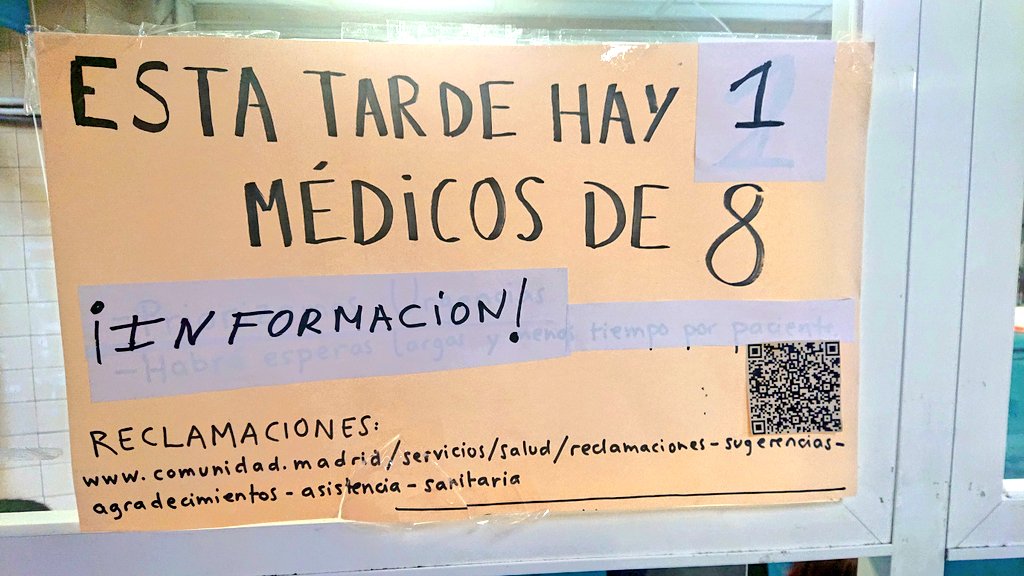 ESTA TARDE HAY 1
MÉDICOS DE 8
¡INFORMACION!
- Habrá esperas largas y menos tiempo por paciente
RECLAMACIONES:
www.comunidad.madrid/servicios/salud/reclamaciones-sugerencias-
agradecimientos-asistencia-sanitaria